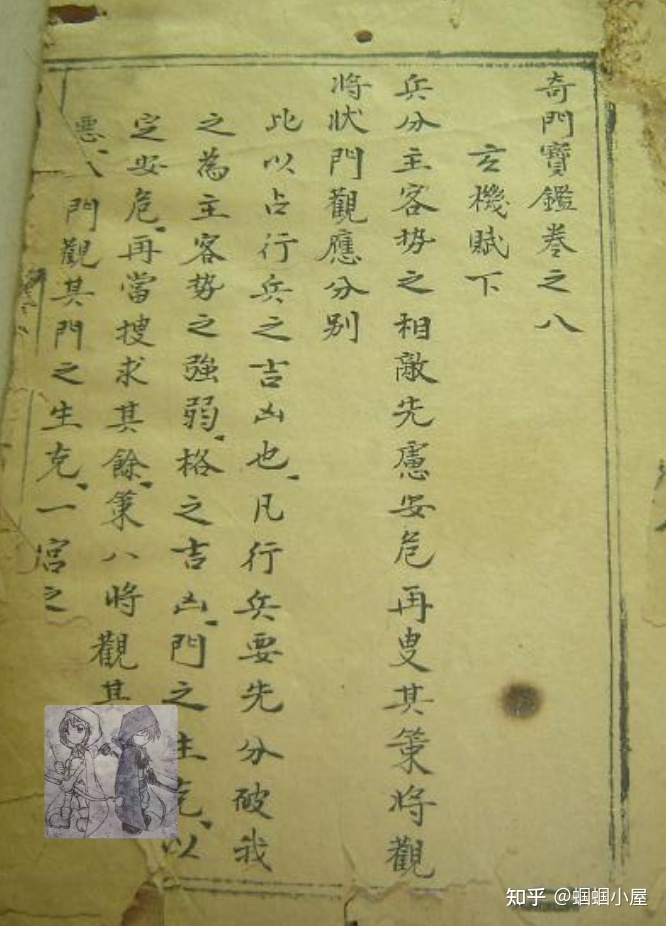 奇門寶鑑卷之八
玄機賦下
兵分主客势之相敵先慮安危再叟其策将觀
将状門觀應分别
此以占行兵之吉凶也凡行兵要先分破我
之為主客势之強弱格之吉凶門之生克以
定安危再當搜求其餘策八将觀其
悪八門觀其門之生克一宮之
知乎 @蝈蝈小屋